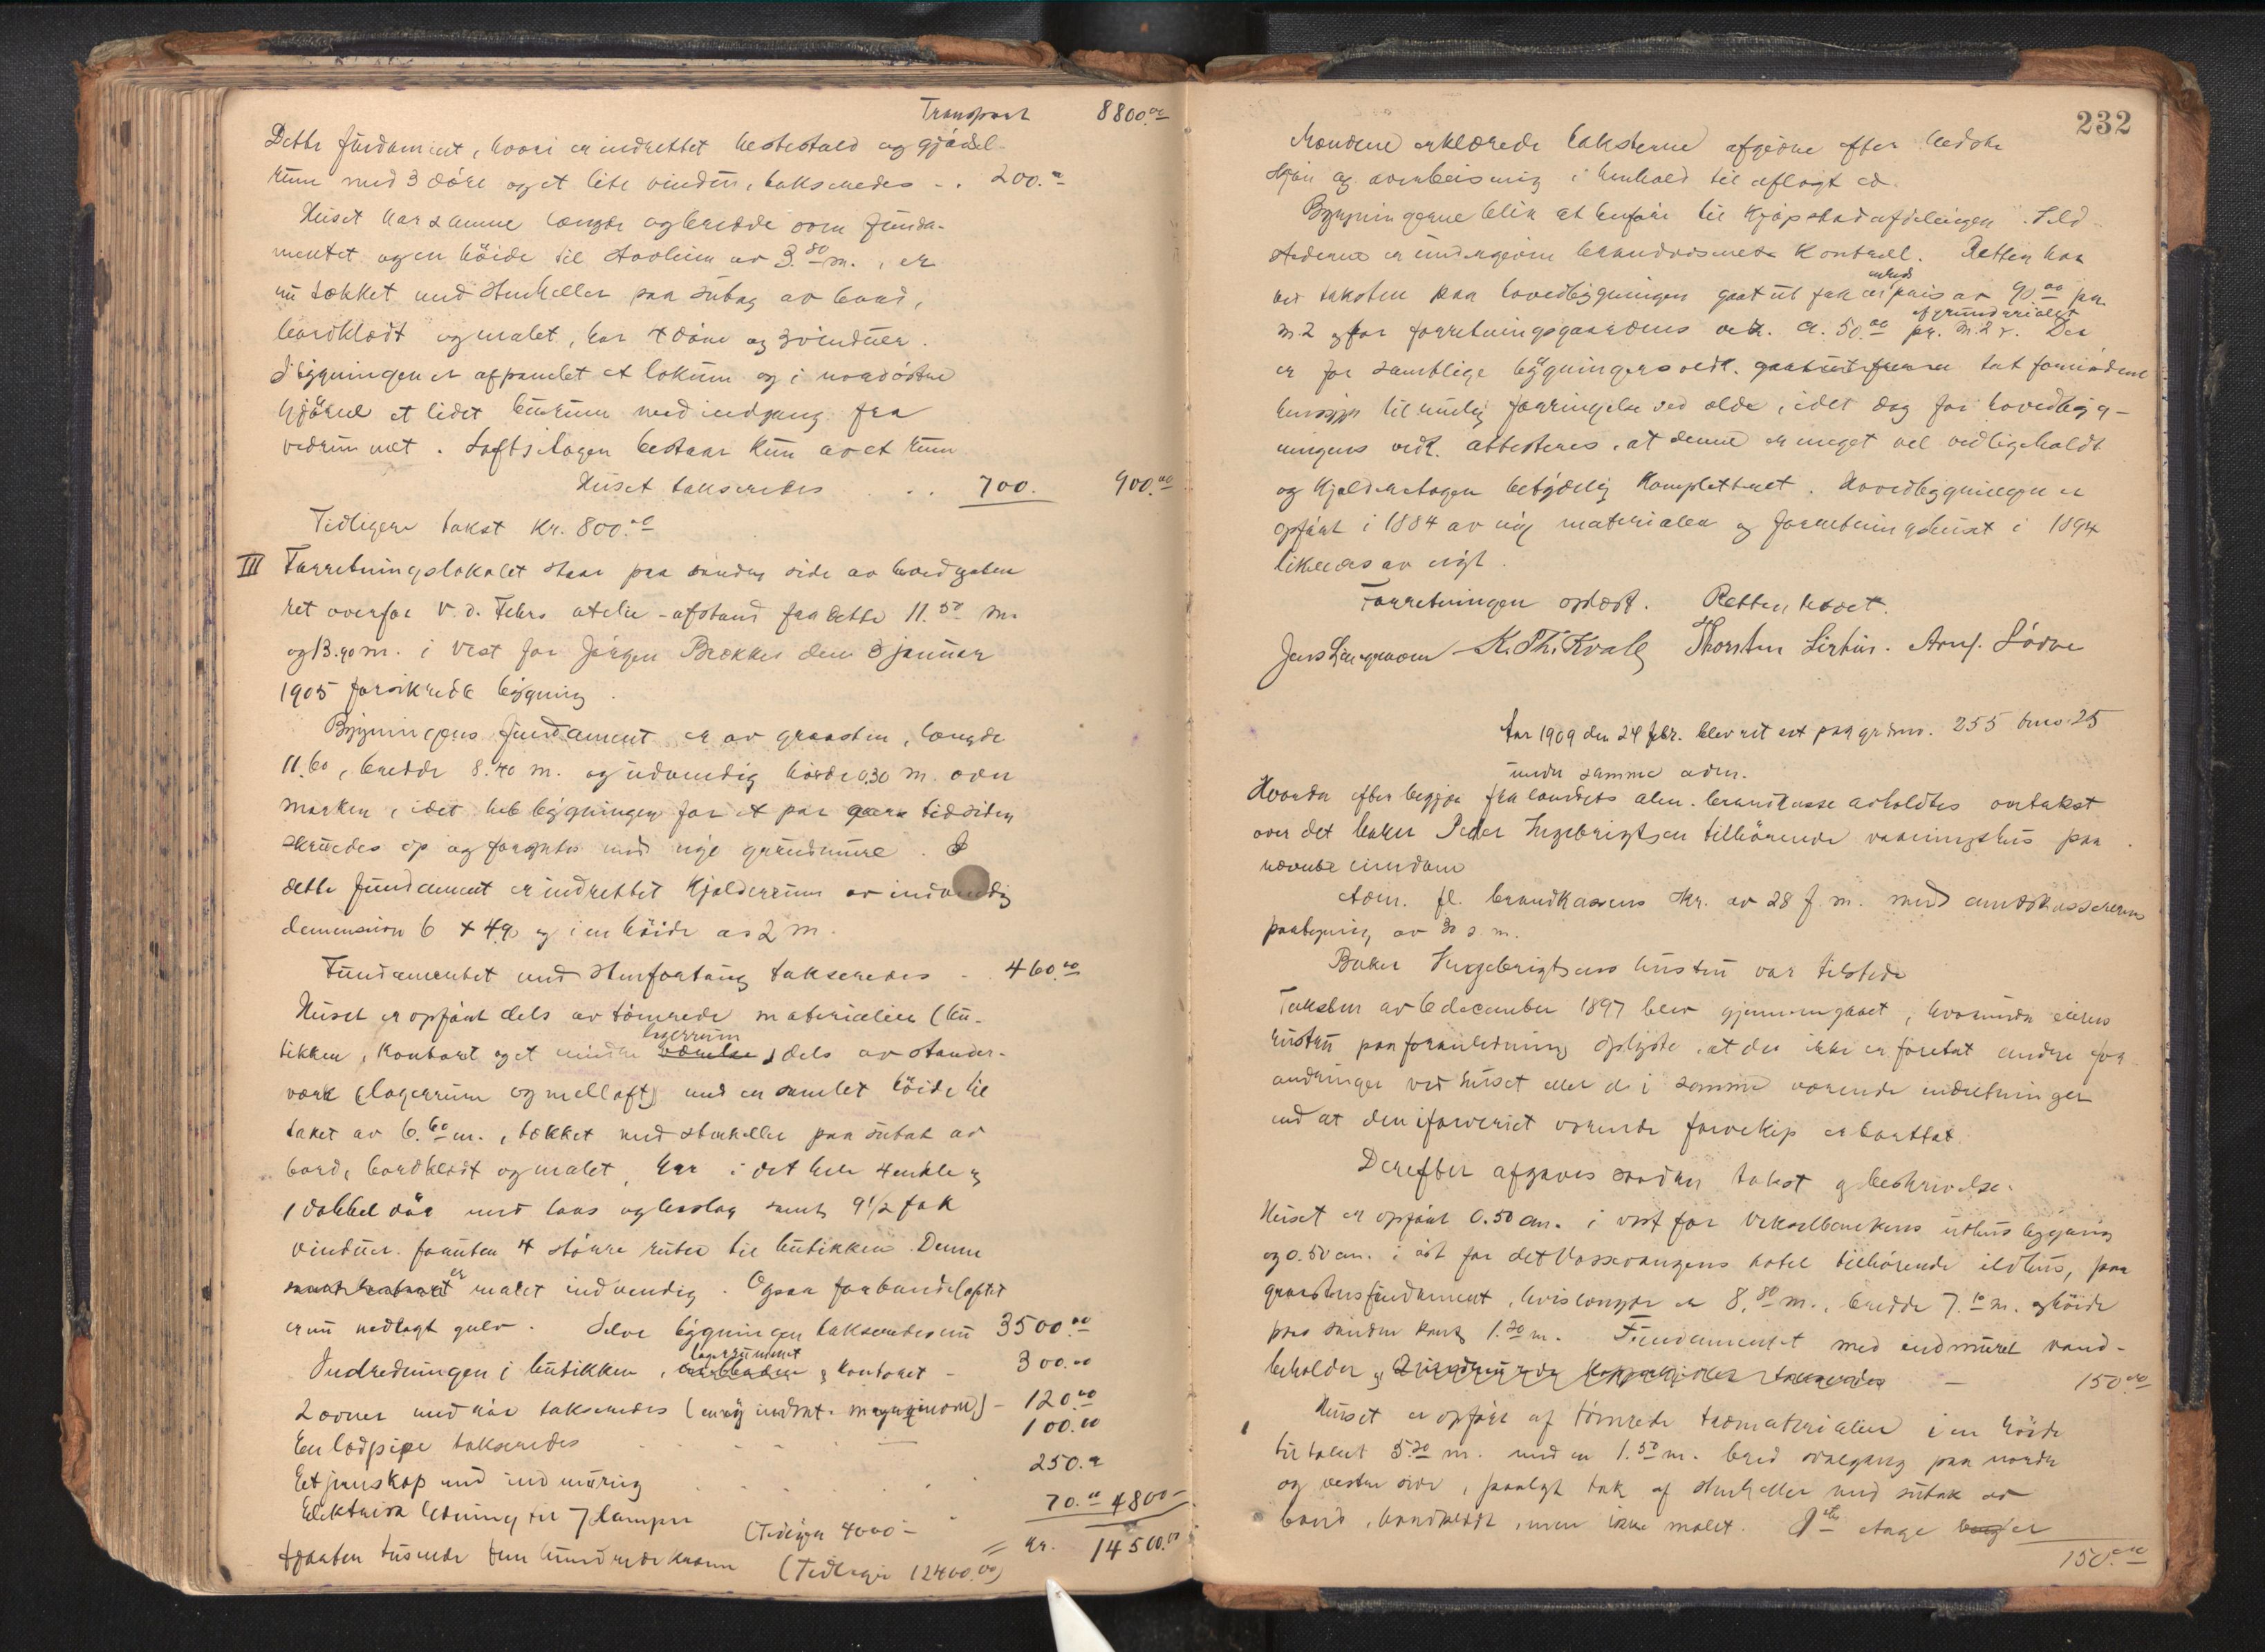 Transport 8800.00
Dette fundament, hvori er indrettet hestestald og gjødsel-
rum med 3 døre og et lite vindu, takseredes - . 200.00
Huset har samme længde og bredde som funda-
mentet og en höide til stavlinn av 3.80 m., er
nu tækket med stenheller paa sutag av bord,
bordklædt og malet, har 4 döre og 3 vinduer.
I bygningen er afpanelet et lokum og i nordöstre
hjörne et lidet rum med indgang fra
vedrummet. Loftsetagen bestaar kun av et rum
Huset takseredes . . 700. 900.00
Tidligere takst Kr. 800.00
III Forretningslokalet staar paa söndre side av hovedgaten
ret overfor V. d. Fehrs atelie - afstand fra dette 11.50 m.
og 13.90 m. i vest for Jörgen Brekkes den 3 januar
1905 forsikrede bygning.
Bygningens fundament er av graasten, længde
11.60, bredde 8.40 m. og udvendig höide 0.30 m. over
marken, idet hele bygningen for et par aar tid siden
skruedes op og forsynes med nye grundmure. I
dette fundament er indrettet kjelderrum av indvendig
demension 6 x 4.90 og i en höide av 2 m.
Fundamentet med stenfortaug takseredes - . 460.00
Huset er opfört dels av tömrede materialier (bu-
tikken, kontoret og et mindre værelse lagerrum) dels av stender-
værk (lagerrum og melloft) med en samlet höide til
taket av 6.60 m., tækket med stenheller paa sutak av
bord, bordklædt og malet, har i det hele 4 enkle og
1 dobbel dör med laas og beslag samt 9 1/2 fak
vinduer foruten 4 större ruter til butikken. Denne
er malet indvendig. Ogsaa forhandeloftet
er nu nedlagt gulv. Selve bygningen takseredes nu 3500.00
Indredningen i butikken, lagerrummet og kontoret - 300.00
2 ovner med rör takseredes (en ny indsat. magasinovn) - 120.00
En lodpipe takseredes 100.00
Et jernskap med indmuring 250.00
Elektrisk ledning til 7 lamper 70.00 4800 -
(Tidligere 4000 -
fjorten tusende fem hundrede kroner (Tidligere 12400.00) = Kr. 14500.00
232
Mændene erklærede taksterne afgivne efter bedste
skjön og overbevisning i henhold til aflagt ed.
Bygningerne blir at henföre til kjöpstadafdelingen. Ild-
stederne er undergivne brandvæsenets kontroll. Retten har
ved taksten paa hovedbygningen gaat ut fra en enheds pris av 90.00 pr.
m.2 og for forretningsgaardens vedk. a. 50.00 pr. m.2 af grundarealet. Der
er for samtlige bygningers vedk. tat fornödent
hensyn til mulig forringelse ved ælde, idet dog for hovedbyg-
ningens vedk. attesteres, at denne er meget vel vedligeholdt
og kjelderetagen betydelig kompletteret. Hovedbygningen er
opfört i 1884 av nye materialer og forretningshuset i 1894
likeledes av nyt.
Forretningen oplæst. Retten hævet.
Jens K. Th. Kvale Thorsten Lirhus. Arnf. Lödve
Aar 1909 den 24 febr. blev ret sat paa gr.no. 255 br.no. 25
under samme adm.
Hvorda efter begjær fra landets alm. brandkasse avholdtes omtakst
over det baker Peder Ingebrigtsen tilhörende vaaningshus paa
nævnte eiendom
Adm. fl. brandkassens skr. av 28 f. m. med amtskassererens
paategning av 30 s. m.
Baker Ingebrigtsens hustru var tilstede
Taksten av 6 december 1897 blev gjennemgaaet, hvorunder eierens
hustru paa foranledning oplyste, at der ikke er foretat andre for-
andringer ved huset eller de i samme værende indretninger
end at den i farveriet værende farvekip er borttat.
Derefter afgaves saadan takst og beskrivelse.
Huset er opfört 0.50 cm. i vest for Vekselbankens uthusbygning
og 0.50 cm. i öst for det Vossevangens hotel tilhörende ildhus, paa
graastensfundament, hvis længde er 8.80 m., bredde 7.10 m. og höide
paa söndre kant 1.20 m. Fundamentet med indmuret vand-
beholder og takseredes - 150.00
Huset er opfört af tömrede træmaterialier i en höide
til taket 5.20 m. med en 1.50 m. bred svalgang paa nordre
og vestre side, paalagt tak af stenheller med sutak av
bord, bordklædt, men ikke malet. 1ste etage er
150.00